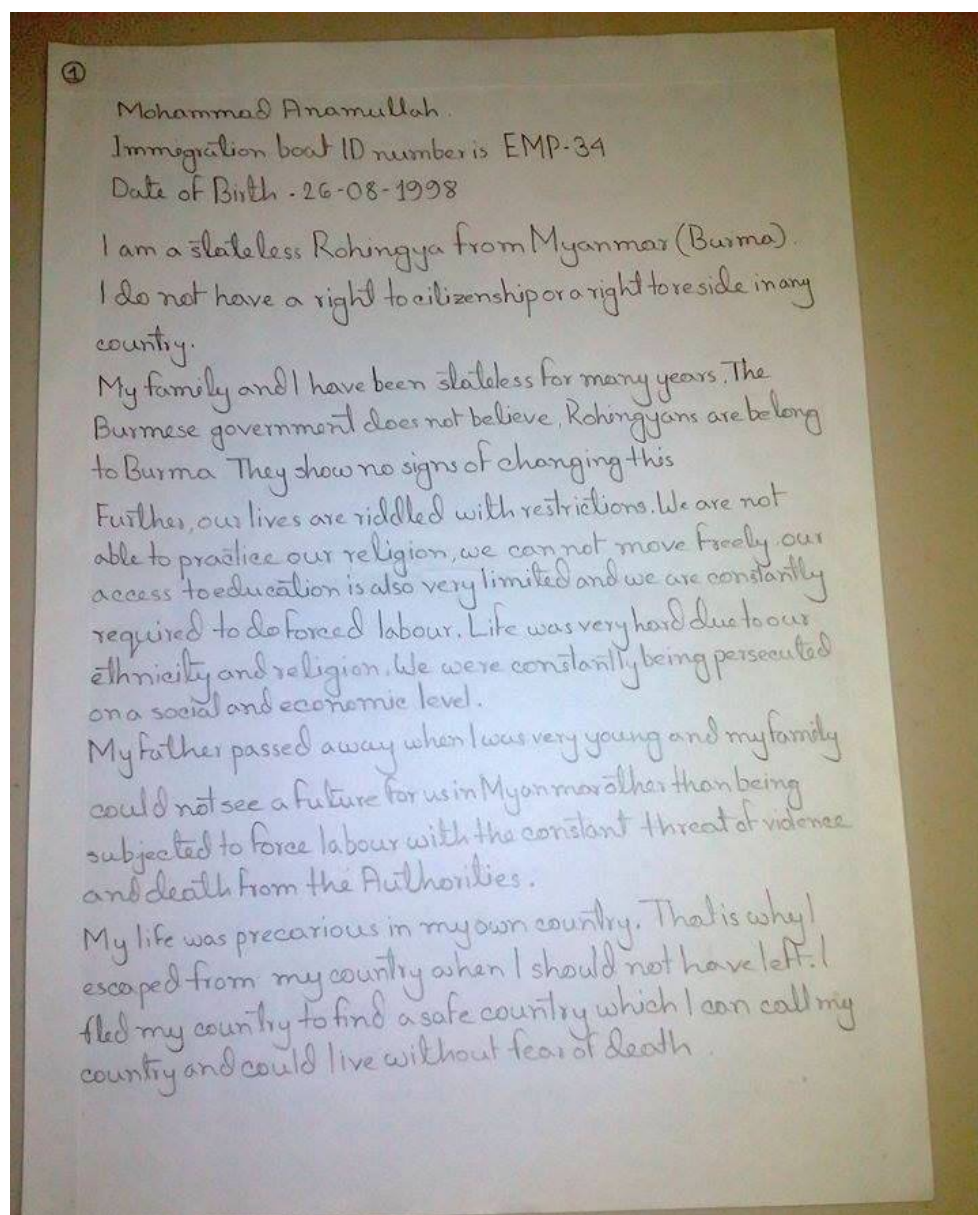 1
Mohammad Anamullah.
Immegration boat ID number is EMP-34
Date of Birth - 26-08-1998
I am a stateless Rohingya from Myanmar (Burma).
I do not have a right to citizenship or a right to reside in any
country.
My family and I have been stateless for many years. The
Burmese government does not believe, Rohingyans are belong
to Burma They show no signs of changing this
Further, our lives are riddled with restrictions. We are not
able to practice our religion, we can not move freely our
access to education is also very limited and we are constantly
required to do forced labour. Life was very hard due to our
ethnicity and religion. We were constantly being persecuted
on a social and economic level.
My father passed away when I was very young and my family
could not see a future for us in Myanmar other than being
subjected to force labour with the constant threat of violence
and death from the Authorities.
My life was precarious in my own country. That is why I
escaped from my country when I should not have left. I
fled my country to find a safe country which I can call my
country and could live without fear of death.